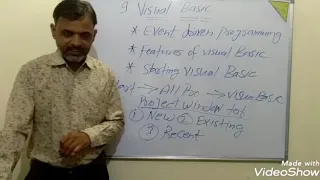 9 Visual Basic
* Event driven programming
* Features of Visual Basic
* Starting Visual Basic
Start → All Pro → Visual Basic
Project Window tab
① New ② Existing
③ Recent
Made with
VideoShow